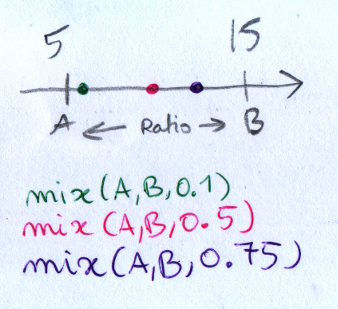 5 15
A ← Ratio → B
mix(A,B,0.1)
mix(A,B,0.5)
mix(A,B,0.75)